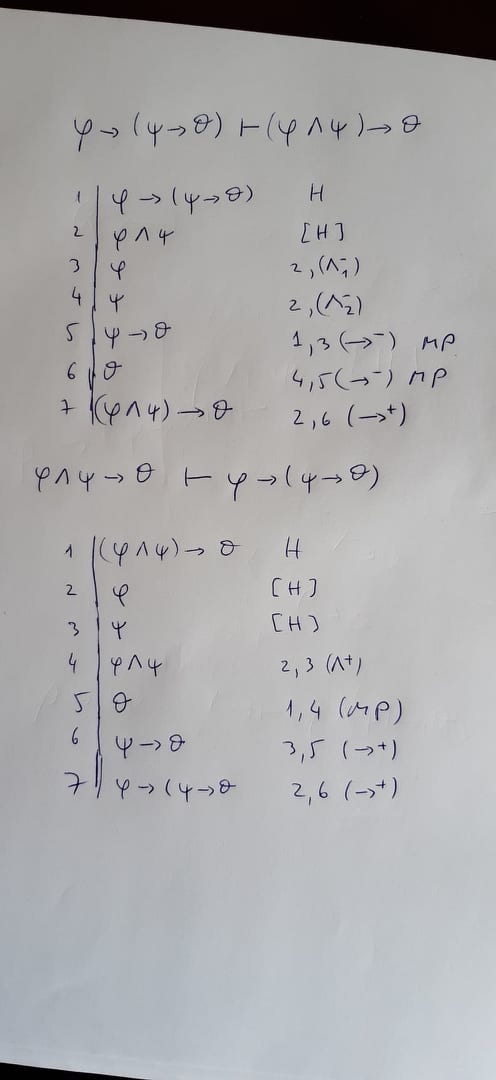 φ → (ψ → θ) ⊢ (φ ∧ ψ) → θ
1 φ → (ψ → θ) H
2 φ ∧ ψ [H]
3 φ 2, (∧⁻₁)
4 ψ 2, (∧⁻₂)
5 ψ → θ 1, 3 (→⁻) MP
6 θ 4, 5 (→⁻) MP
7 (φ ∧ ψ) → θ 2, 6 (→⁺)
φ ∧ ψ → θ ⊢ φ → (ψ → θ)
1 (φ ∧ ψ) → θ H
2 φ [H]
3 ψ [H]
4 φ ∧ ψ 2, 3 (∧⁺)
5 θ 1, 4 (MP)
6 ψ → θ 3, 5 (→⁺)
7 φ → (ψ → θ 2, 6 (→⁺)